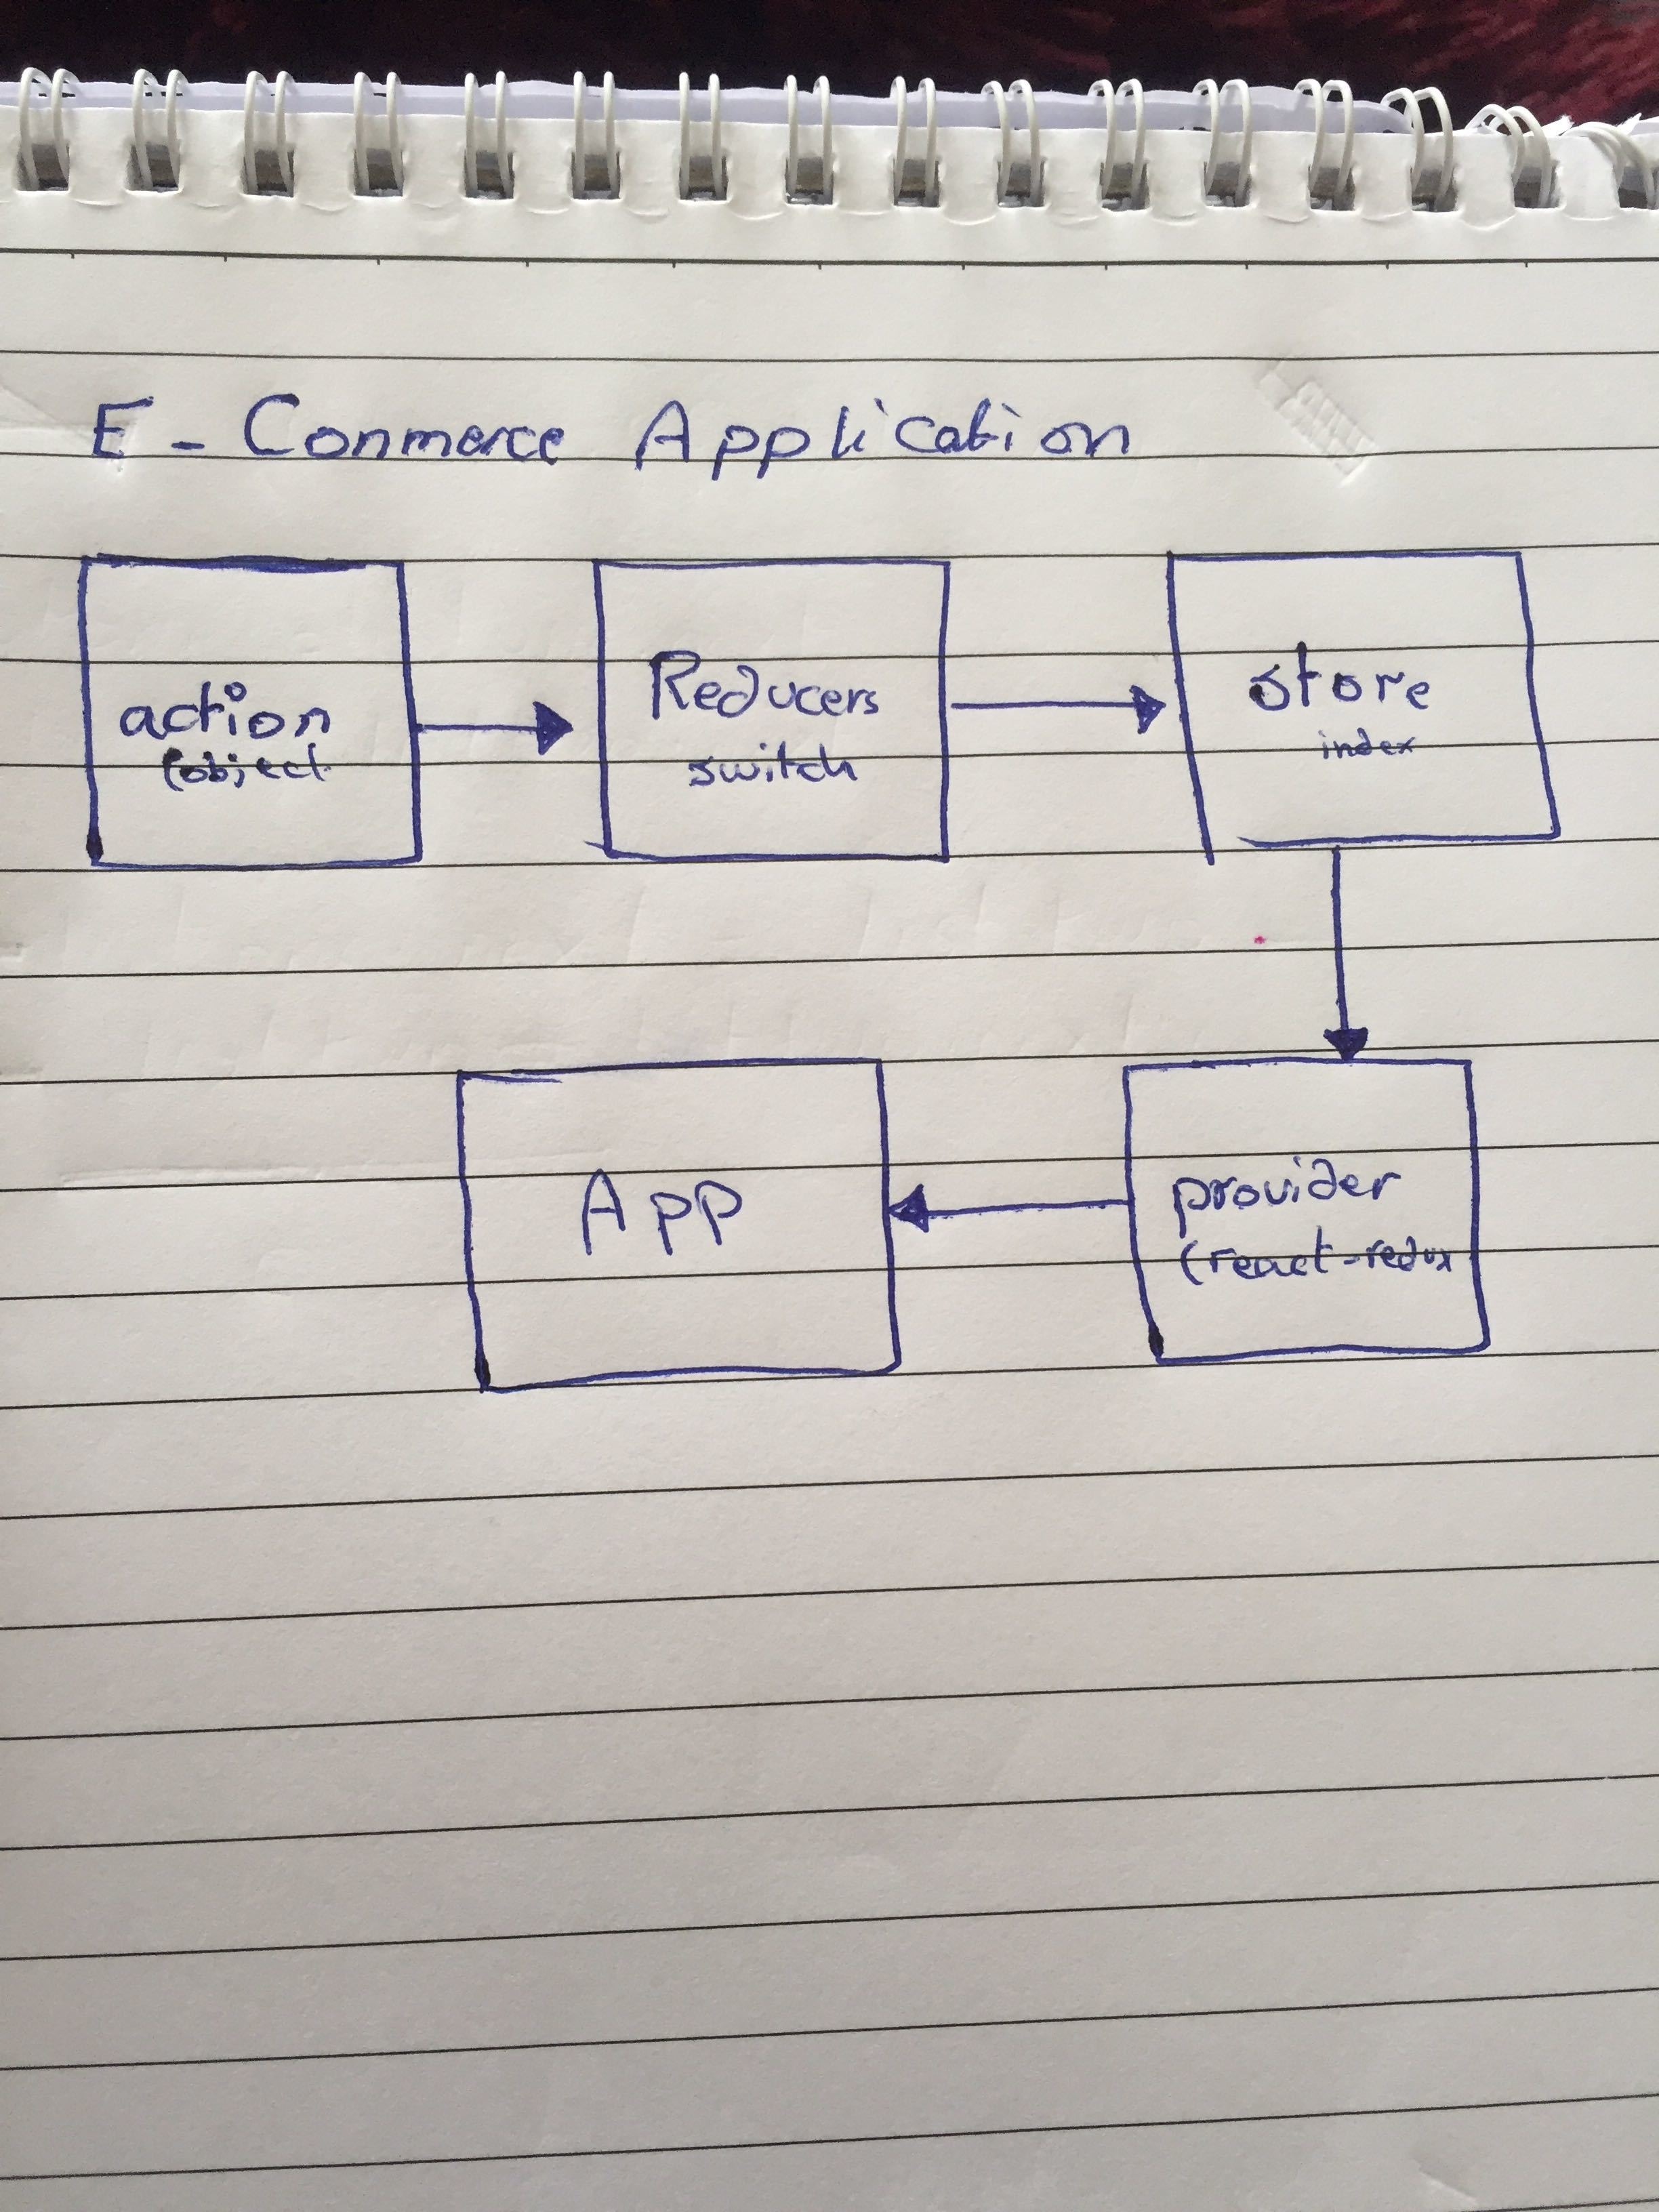 E - Conmerce Application
action
(object
Reducers
switch
store
index
App
provider
(react-redux